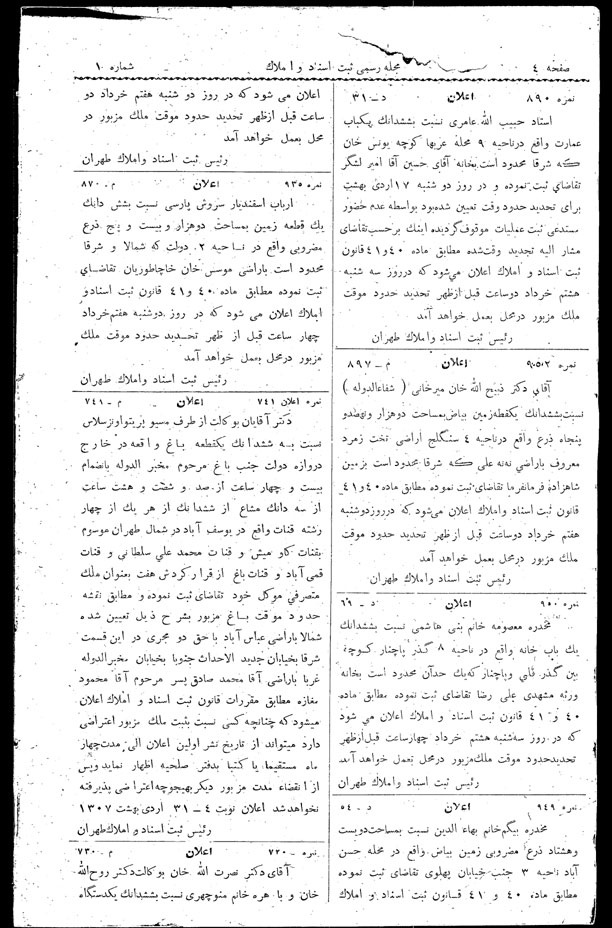 صفحه ٤ مجله رسمی ثبت اسناد و املاك شماره ١٠
نمره ٨٩٠ اعلان د ــ ٣١٠
استاد حبیب الله عامری نسبت بششدانك یکباب
عمارت واقع درناحیه ٩ محله عربها کوچه یونس خان
که شرقا محدود است بخانه آقای حسین آقا امیر لشگر
تقاضای ثبت نموده و در روز دو شنبه ١٧ اردی بهشت
برای تحدید حدود وقت تعیین شده بود بواسطه عدم حضور
مستدعی ثبت عملیات موقوف گردیده اینك برحسب تقاضای
مشار الیه تجدید وقت شده مطابق ماده ٤٠ و ٤١ قانون
ثبت اسناد و املاك اعلان می شود که درروز سه شنبه
هشتم خرداد دوساعت قبل ازظهر تحدید حدود موقت
ملك مزبور درمحل بعمل خواهد آمد
رئیس ثبت اسناد واملاك طهران
نمره ٩٠٥٥٢ اعلان م ــ ٨٩٧
آقای دکتر ذبیح الله خان میرخانی ( شفاءالدوله )
نسبت بششدانك یکقطعه زمین بیاض بمساحت دوهزار ونهصدو
پنجاه ذرع واقع درناحیه ٤ سنگلج اراضی تخت زمرد
معروف باراضی ننه علی که شرقا محدود است بزمین
شاهزاده فرمانفرما تقاضای ثبت نموده مطابق ماده ٤٠ و ٤١
قانون ثبت اسناد واملاك اعلان می شود که درروز دوشنبه
هفتم خرداد دوساعت قبل ازظهر تحدید حدود موقت
ملك مزبور درمحل بعمل خواهد آمد
رئیس ثبت اسناد واملاك طهران
نمره ٩٥٠ اعلان د ــ ٦٩
مخدره معصومه خانم بنی هاشمی نسبت بششدانك
یك باب خانه واقع در ناحیه ٨ گذر پاچنار کوچه
بین گذر قلی وپاچنار که یك حدآن محدود است بخانه
ورثه مشهدی علی رضا تقاضای ثبت نموده مطابق ماده
٤٠ و ٤١ قانون ثبت اسناد و املاك اعلان می شود
که در روز سه شنبه هشتم خرداد چهارساعت قبل ازظهر
تحدیدحدود موقت ملك مزبور درمحل بعمل خواهد آمد
رئیس ثبت اسناد و املاك طهران
نمره ٩٤٩ اعلان د ــ ٥٤
مخدره بیگم خانم بهاء الدین نسبت بمساحت دویست
وهشتاد ذرع مضروبی زمین بیاض واقع در محله حسن
آباد ناحیه ٣ جنب خیابان پهلوی تقاضای ثبت نموده
مطابق ماده ٤٠ و ٤١ قانون ثبت اسناد و املاك
اعلان می شود که در روز دو شنبه هفتم خرداد دو
ساعت قبل ازظهر تحدید حدود موقت ملك مزبور در
محل بعمل خواهد آمد
رئیس ثبت اسناد واملاك طهران
نمره ٩٣٥ اعلان م ــ ٨٧٠
ارباب اسفندیار سروش پارسی نسبت بشش دانك
یك قطعه زمین بمساحت دوهزار و بیست و پنج ذرع
مضروبی واقع در ناحیه ٢ دولت که شمالا و شرقا
محدود است باراضی موسس خان خاچاطوریان تقاضای
ثبت نموده مطابق ماده ٤٠ و ٤١ قانون ثبت اسناد و
املاك اعلان می شود که در روز دوشنبه هفتم خرداد
چهار ساعت قبل از ظهر تحدید حدود موقت ملك
مزبور درمحل بعمل خواهد آمد
رئیس ثبت اسناد و املاك طهران
نمره اعلان ٧٤١ اعلان م ــ ٧٤١
دکتر آقایان بوکالت از طرف مسیو بریتوا ونزسلاس
نسبت بسه ششدانك یکقطعه باغ واقعه در خارج
دروازه دولت جنب باغ مرحوم مخبر الدوله بانضمام
بیست و چهار ساعت از صد و شصت و هشت ساعت
از سه دانك مشاع از ششدانك از هر یك از چهار
رشته قنات واقع در یوسف آباد در شمال طهران موسوم
بقنات کاومیش و قنات محمد علی سلطانی و قنات
قمی آباد و قنات باغ از قرار گردش هفت بعنوان ملك
متصرفی موکل خود تقاضای ثبت نموده و مطابق نقشه
حدود موقت باغ مزبور بشرح ذیل تعیین شده
شمالا باراضی عباس آباد باحق دو مجری در این قسمت
شرقا بخیابان جدید الاحداث جنوبا بخیابان مخبرالدوله
غربا باراضی آقا محمد صادق پسر مرحوم آقا محمود
مغازه مطابق مقررات قانون ثبت اسناد و املاك اعلان
میشود که چنانچه کسی نسبت بثبت ملك مزبور اعتراضی
دارد میتواند از تاریخ نشر اولین اعلان الی مدت چهار
ماه مستقیما یا کتبا بدفتر صلحیه اظهار نماید وپس
از انقضاء مدت مزبور دیگر بهیچوجه اعتراضی پذیرفته
نخواهد شد اعلان نوبت ٤ ــ ٣١ اردی بهشت ١٣٠٧
رئیس ثبت اسناد و املاك طهران
نمره ٧٢٠ اعلان م ــ ٧٣٠
آقای دکتر نصرت الله خان بوکالت دکتر روح الله
خان و با هره خانم منوچهری نسبت بششدانك یکدستگاه